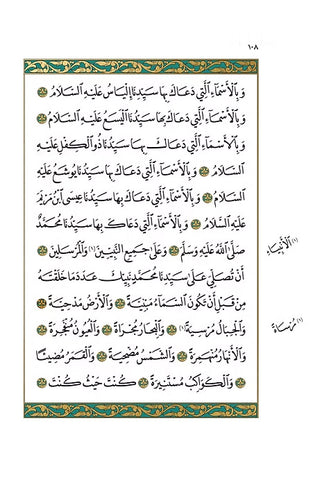 ١٠٨
وَبِالْأَسْمَاءِ الَّتِي دَعَاكَ بِهَا سَيِّدُنَا إِلْيَاسُ عَلَيْهِ السَّلَامُ
وَبِالْأَسْمَاءِ الَّتِي دَعَاكَ بِهَا سَيِّدُنَا الْيَسَعُ عَلَيْهِ السَّلَامُ
وَبِالْأَسْمَاءِ الَّتِي دَعَاكَ بِهَا سَيِّدُنَا ذُو الْكِفْلِ عَلَيْهِ
السَّلَامُ وَبِالْأَسْمَاءِ الَّتِي دَعَاكَ بِهَا سَيِّدُنَا يُوشَعُ عَلَيْهِ
السَّلَامُ وَبِالْأَسْمَاءِ الَّتِي دَعَاكَ بِهَا سَيِّدُنَا عِيسَى ابْنُ مَرْيَمَ
عَلَيْهِ السَّلَامُ وَبِالْأَسْمَاءِ الَّتِي دَعَاكَ بِهَا سَيِّدُنَا مُحَمَّدٌ
صَلَّى اللهُ عَلَيْهِ وَسَلَّمَ وَعَلَى جَمِيعِ النَّبِيِّينَ (١) وَالْمُرْسَلِينَ
(١) الْأَنْبِيَاءِ
أَنْ تُصَلِّيَ عَلَى سَيِّدِنَا مُحَمَّدٍ نَبِيِّكَ عَدَدَ مَا خَلَقْتَهُ
مِنْ قَبْلِ أَنْ تَكُونَ السَّمَاءُ مَبْنِيَّةً وَالْأَرْضُ مَدْحِيَّةً
وَالْجِبَالُ مُرْسِيَةً (١) وَالْبِحَارُ مُجْرَاةً وَالْعُيُونُ مُنْفَجِرَةً
(١) مُرْسَاةً
وَالْأَنْهَارُ مُنْهَمِرَةً وَالشَّمْسُ مُضْحِيَةً وَالْقَمَرُ مُضِيئًا
وَالْكَوَاكِبُ مُسْتَنِيرَةً كُنْتَ حَيْثُ كُنْتَ